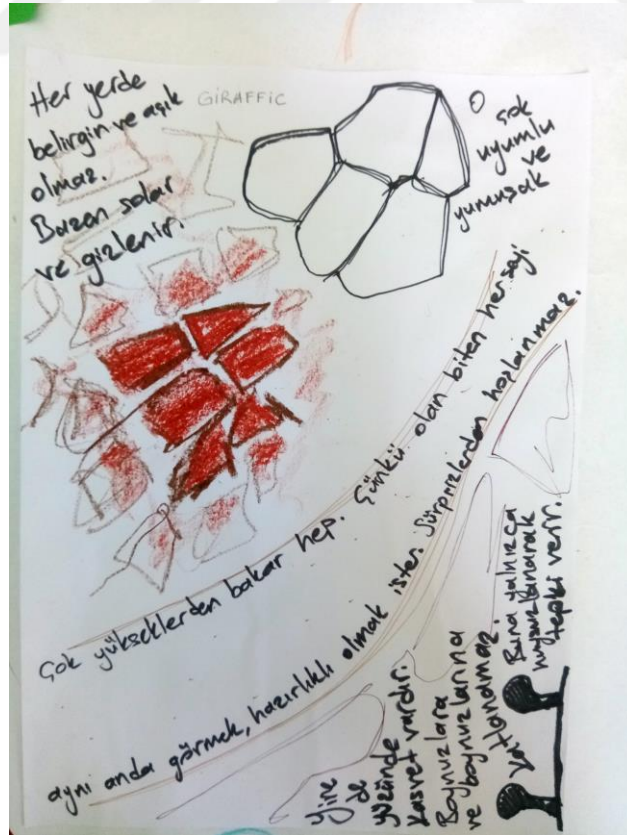 Her yerde
belirgin ve açık
olmaz.
Bazen solar
ve gizlenir.
GiRAFFiC
O çok
uyumlu
ve
yumuşak
Çok yükseklerden bakar hep. Çünkü olan biten herşeyi
aynı anda görmek, hazırlıklı olmak ister. Sürprizlerden hoşlanmaz.
Yine
de
yüzünde
kasvet vardır.
Boynuzlara
ve
boynuzlarına
katlanamaz.
Buna yalnızca
huysuzlanarak
tepki verir.